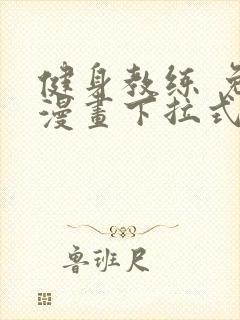 健身教练
漫畫下拉式
鲁班尺